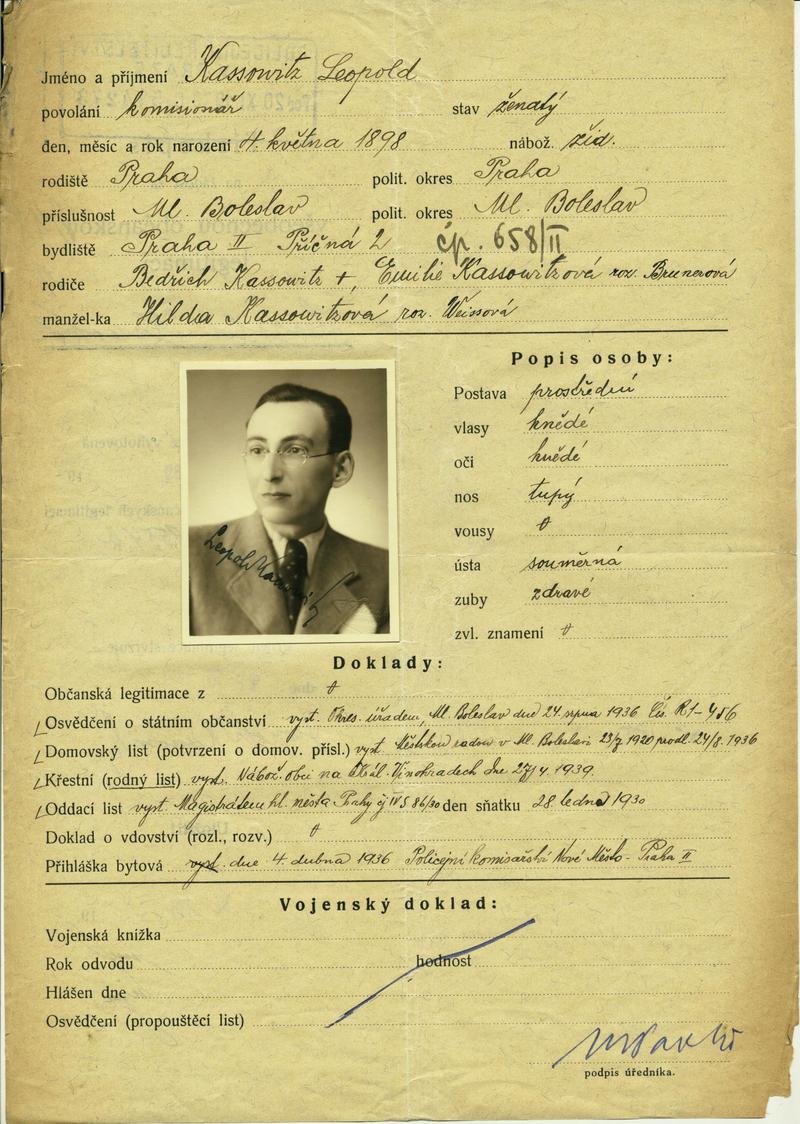 Jméno a příjmení Kassowitz Leopold
povolání komisionář stav ženatý
den, měsíc a rok narození 4. května 1898 nábož. žid.
rodiště Praha polit. okres Praha
příslušnost Ml. Boleslav polit. okres Ml. Boleslav
bydliště Praha II Příčná 2 čp. 658/II
rodiče Bedřich Kassowitz +, Emilie Kassowitzová roz. Brunerová
manžel-ka Hilda Kassowitzová roz. Weissová
Popis osoby:
Postava prostřední
vlasy hnědé
oči hnědé
nos tupý
vousy
ústa souměrná
zuby zdravé
zvl. znamení
Leopold Kassowitz
Doklady:
Občanská legitimace z
Osvědčení o státním občanství vyst. Okres. úřadem, Ml. Boleslav dne 24. srpna 1936 Čís. R1-456
Domovský list (potvrzení o domov. přísl.) vyst. Městskou radou v Ml. Boleslavi 23/7 1920 prodl. 24/8. 1936
Křestní (rodný list) vyst. Nábož. obcí na Král. Vinohradech dne 27/4 1939.
Oddací list vyst. Magistrátem hl. města Prahy čj IV 5 86/30 den sňatku 28 ledna 1930
Doklad o vdovství (rozl., rozv.)
Přihláška bytová vyst. dne 4. dubna 1936 Policejní komisařství Nové Město - Praha II
Vojenský doklad:
Vojenská knížka
Rok odvodu hodnost
Hlášen dne
Osvědčení (propouštěcí list)
podpis úředníka.